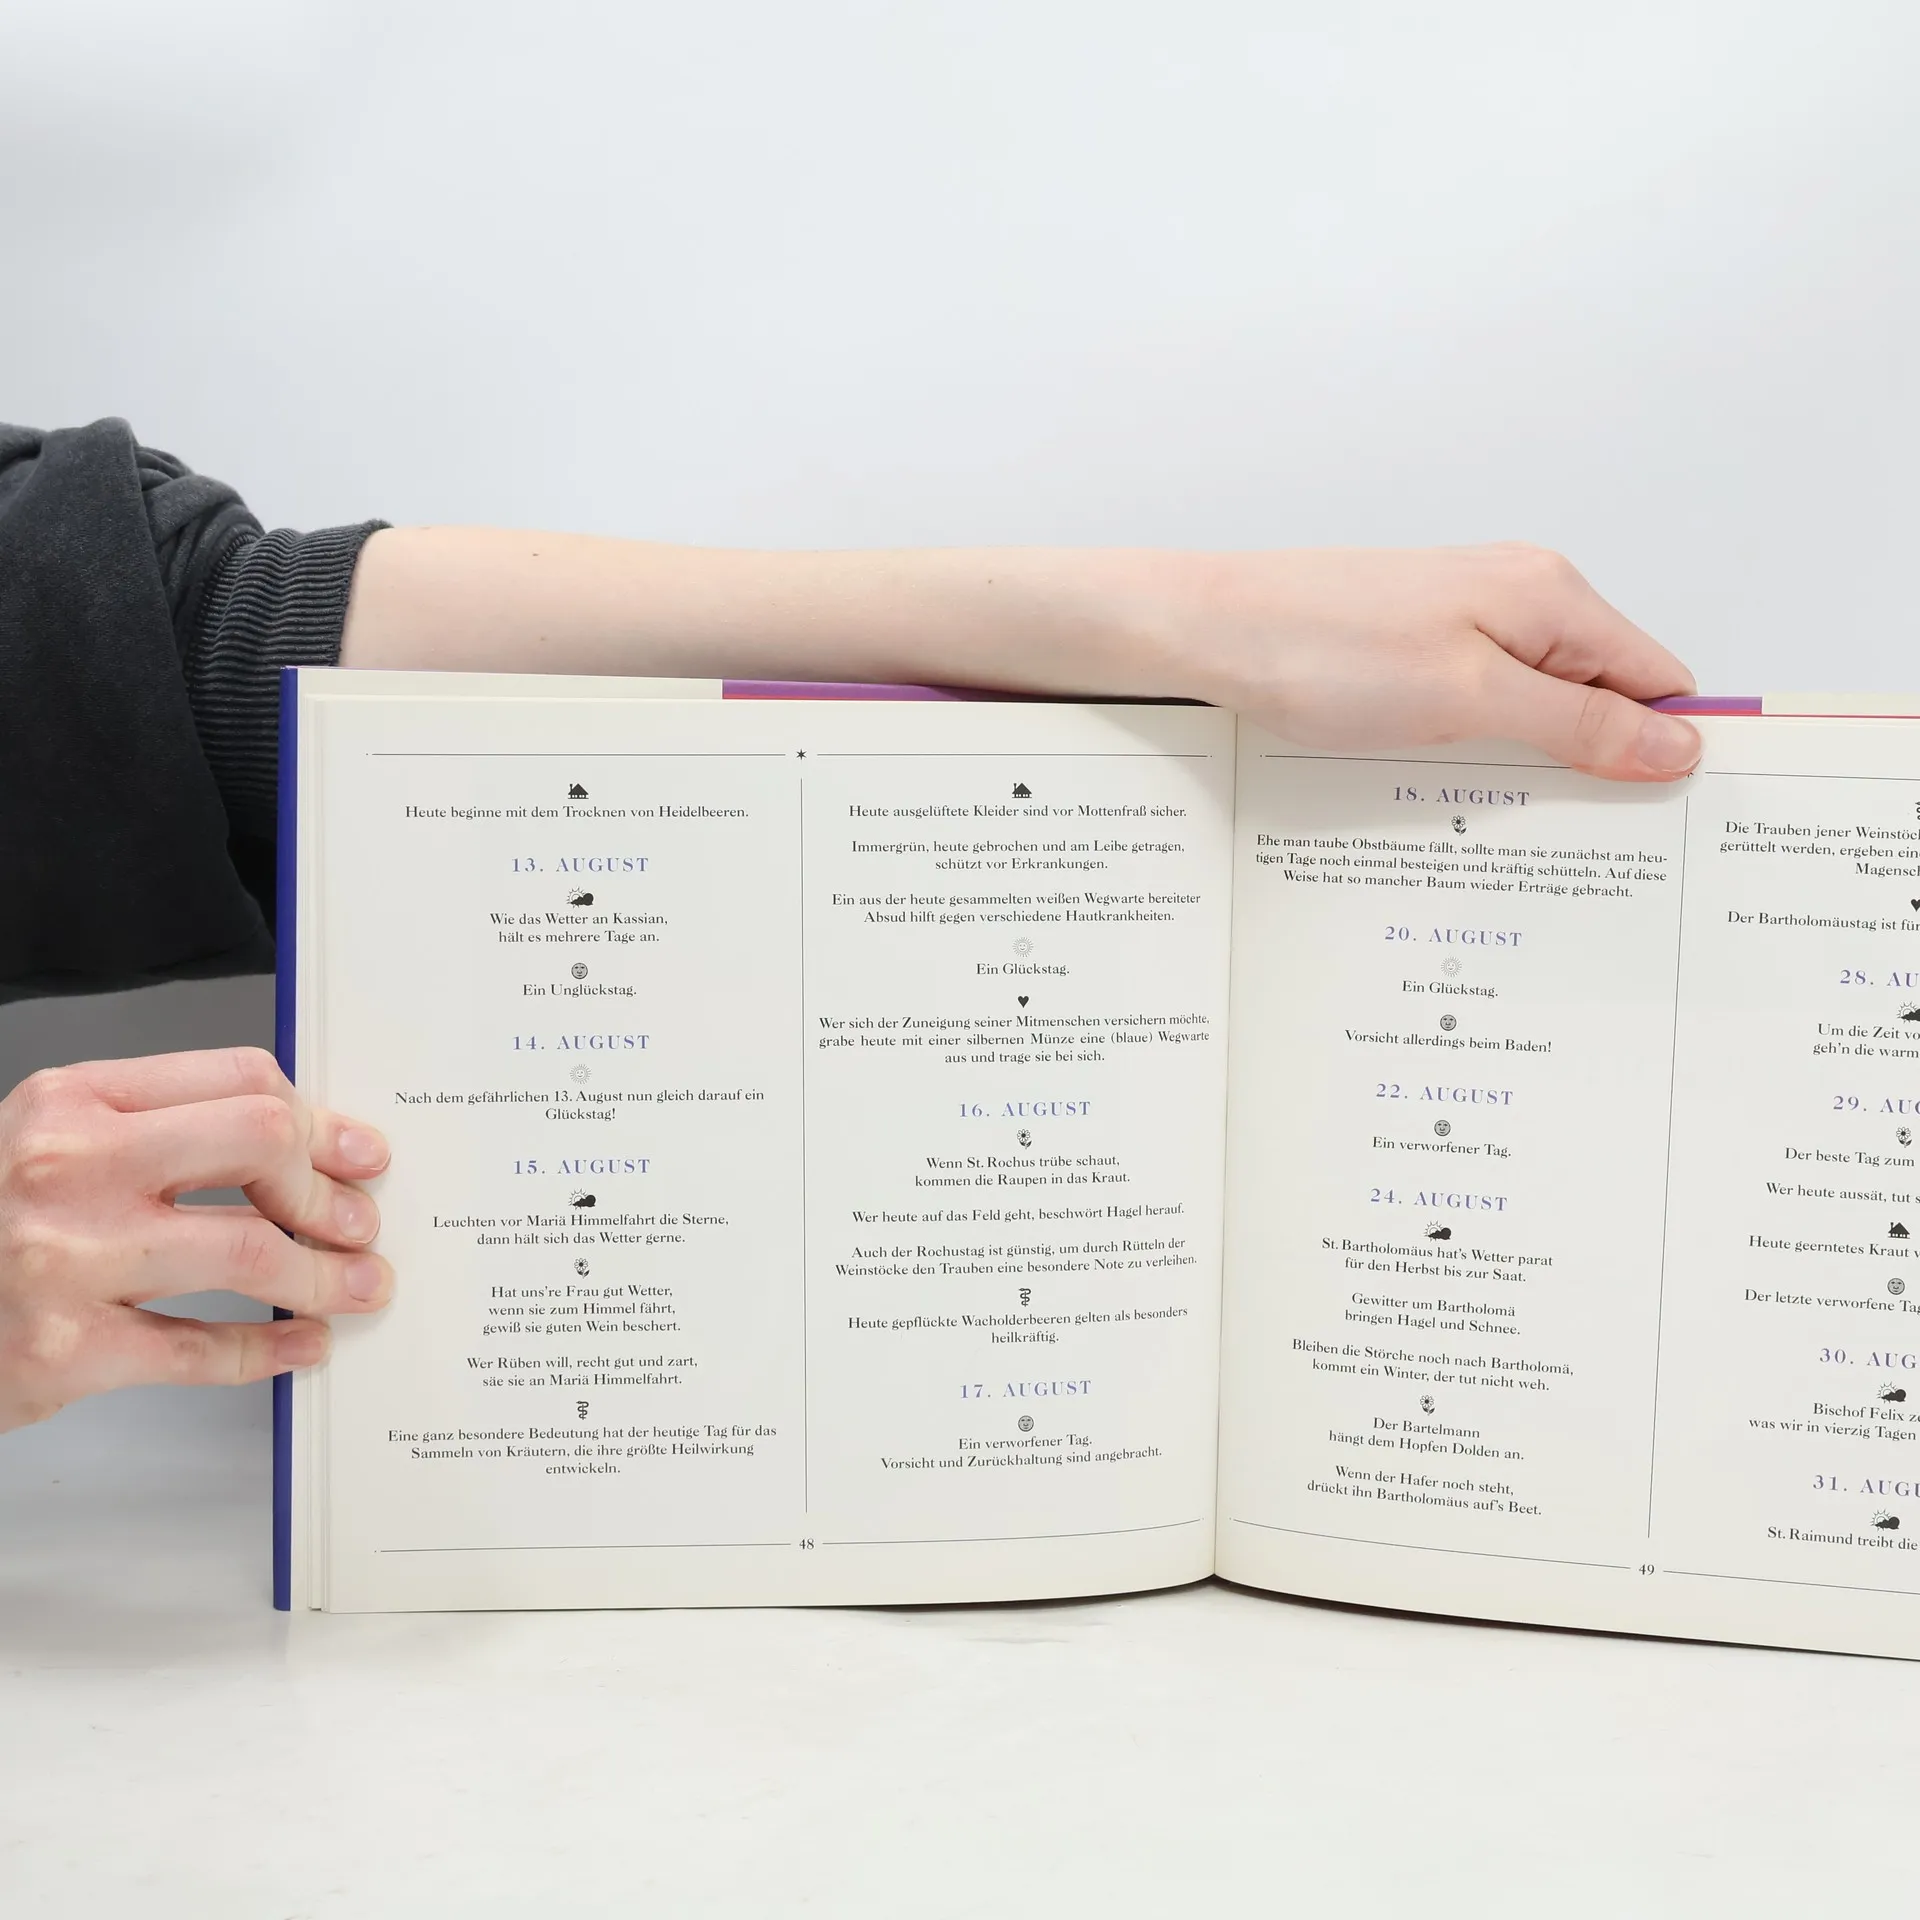 Heute beginne mit dem Trocknen von Heidelbeeren.
13. AUGUST
Wie das Wetter an Kassian,
hält es mehrere Tage an.
Ein Unglückstag.
14. AUGUST
Nach dem gefährlichen 13. August nun gleich darauf ein
Glückstag!
15. AUGUST
Leuchten vor Mariä Himmelfahrt die Sterne,
dann hält sich das Wetter gerne.
Hat uns're Frau gut Wetter,
wenn sie zum Himmel fährt,
gewiß sie guten Wein beschert.
Wer Rüben will, recht gut und zart,
säe sie an Mariä Himmelfahrt.
Eine ganz besondere Bedeutung hat der heutige Tag für das
Sammeln von Kräutern, die ihre größte Heilwirkung
entwickeln.
Heute ausgelüftete Kleider sind vor Mottenfraß sicher.
Immergrün, heute gebrochen und am Leibe getragen,
schützt vor Erkrankungen.
Ein aus der heute gesammelten weißen Wegwarte bereiteter
Absud hilft gegen verschiedene Hautkrankheiten.
Ein Glückstag.
Wer sich der Zuneigung seiner Mitmenschen versichern möchte,
grabe heute mit einer silbernen Münze eine (blaue) Wegwarte
aus und trage sie bei sich.
16. AUGUST
Wenn St. Rochus trübe schaut,
kommen die Raupen in das Kraut.
Wer heute auf das Feld geht, beschwört Hagel herauf.
Auch der Rochustag ist günstig, um durch Rütteln der
Weinstöcke den Trauben eine besondere Note zu verleihen.
Heute gepflückte Wacholderbeeren gelten als besonders
heilkräftig.
17. AUGUST
Ein verworfener Tag.
Vorsicht und Zurückhaltung sind angebracht.
48
18. AUGUST
Ehe man taube Obstbäume fällt, sollte man sie zunächst am heu-
tigen Tage noch einmal besteigen und kräftig schütteln. Auf diese
Weise hat so mancher Baum wieder Erträge gebracht.
20. AUGUST
Ein Glückstag.
Vorsicht allerdings beim Baden!
22. AUGUST
Ein verworfener Tag.
24. AUGUST
St. Bartholomäus hat's Wetter parat
für den Herbst bis zur Saat.
Gewitter um Bartholomä
bringen Hagel und Schnee.
Bleiben die Störche noch nach Bartholomä,
kommt ein Winter, der tut nicht weh.
Der Bartelmann
hängt dem Hopfen Dolden an.
Wenn der Hafer noch steht,
drückt ihn Bartholomäus auf's Beet.
Die Trauben jener Weinstöc
gerüttelt werden, ergeben ein
Magensch
Der Bartholomäustag ist für
28. AU
Um die Zeit vo
geh'n die warm
29. AUG
Der beste Tag zum
Wer heute aussät, tut s
Heute geerntetes Kraut v
Der letzte verworfene Tag
30. AUG
Bischof Felix ze
was wir in vierzig Tagen
31. AUGU
St. Raimund treibt die
49